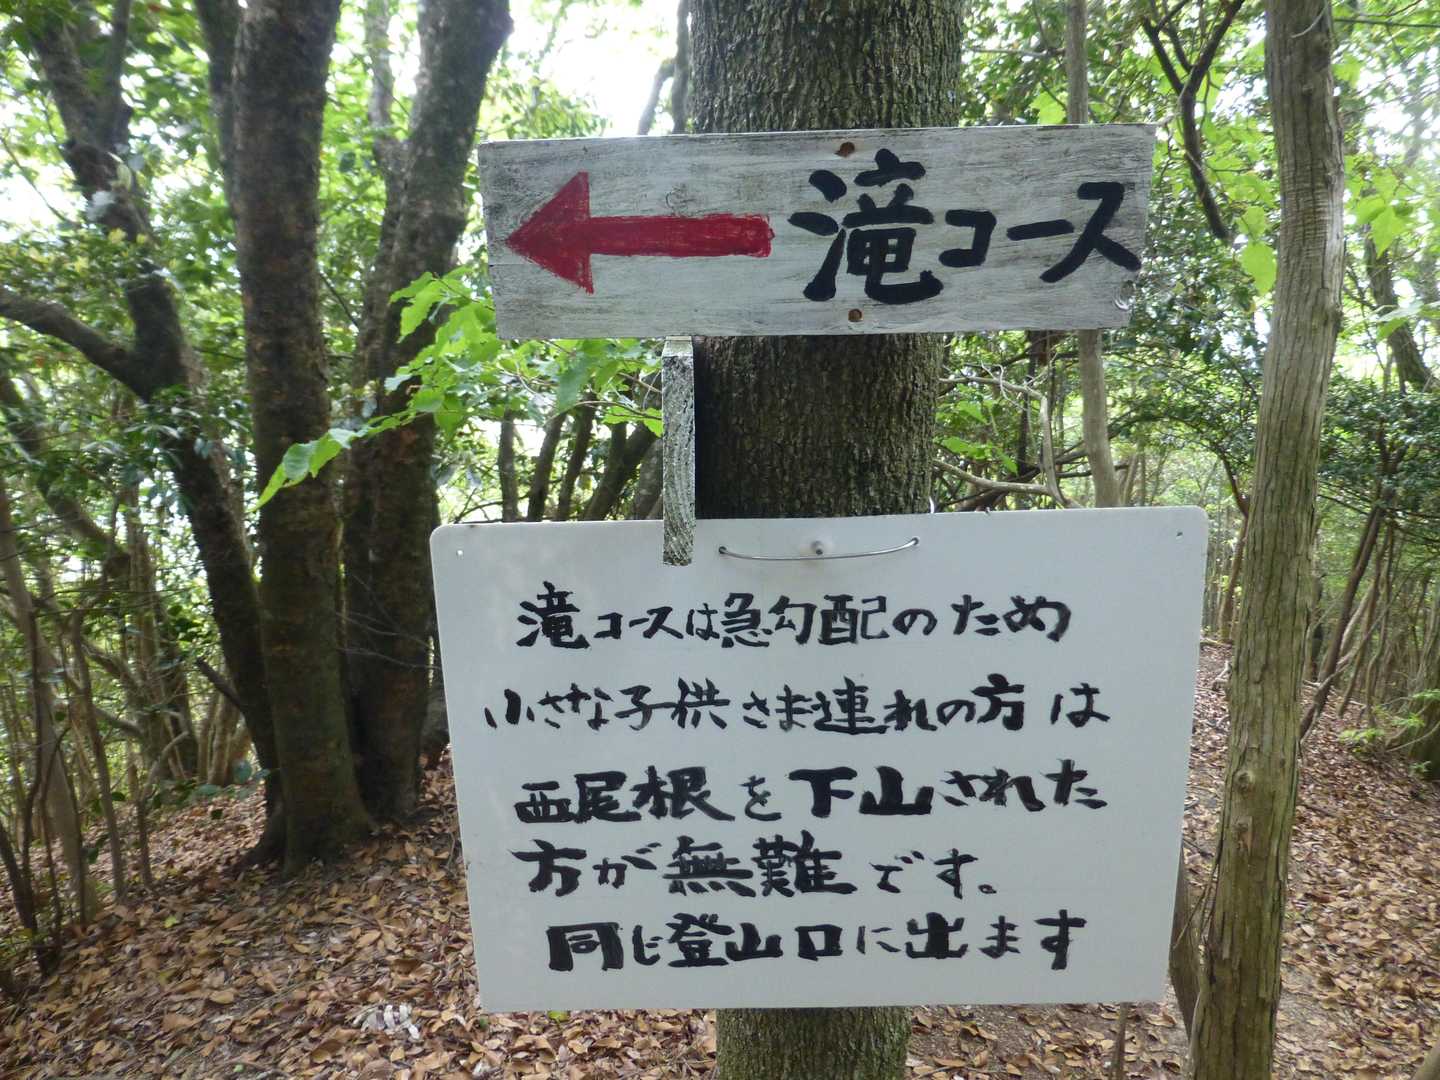 滝コース
滝コースは急勾配のため
小さな子供さま連れの方は
西尾根を下山された
方が無難です。
同じ登山口に出ます